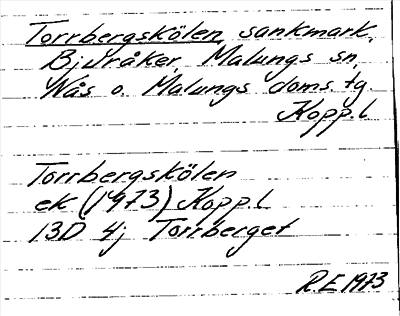 Torrbergskölen, sankmark,
Bjuråker Malungs sn,
Nås o. Malungs doms. tg.
Kopp.l
Torrbergskölen
ek (1973) Kopp.l
13D 4j Torrberget
R.E 1973